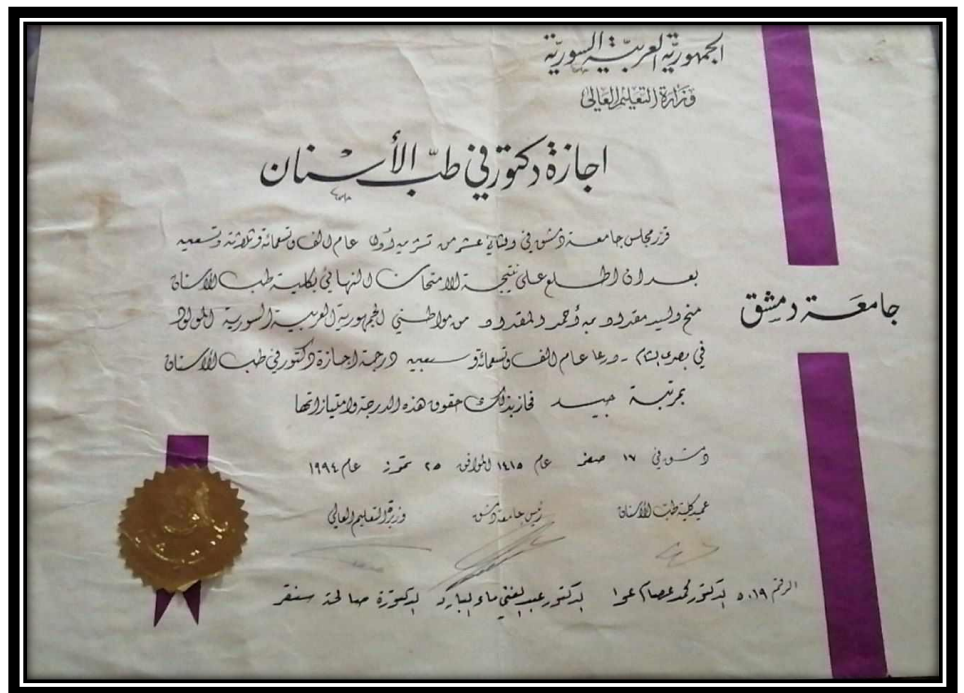 الجمهورية العربية السورية
وزارة التعليم العالي
اجازة دكتور في طب الأسنان
جامعة دمشق
قرر مجلس جامعة دمشق في عشر من تشرين أول عام الف وتسعمائة وثلاثة وتسعين
بعد ان اطلع على نتيجة الامتحانات النهائي بكلية طب الأسنان
منح السيد مقداد بن أحمد المقداد من مواطني الجمهورية العربية السورية المولود
في بصرى الشام - درعا عام الف وتسعمائة وسبعين درجة اجازة دكتور في طب الأسنان
بمرتبة جيد فاز بذلك حقوق هذه الدرجة وامتيازاتها
دمشق في ١٧ صفر عام ١٤١٥ الموافق ٢٥ تموز عام ١٩٩٤
عميد كلية طب الأسنان رئيس جامعة دمشق وزيرة التعليم العالي
الرقم ٥٠١٩ الدكتور محمد عصام عوا الدكتور عبد الغني ماء البارد الدكتورة صالحة سنقر